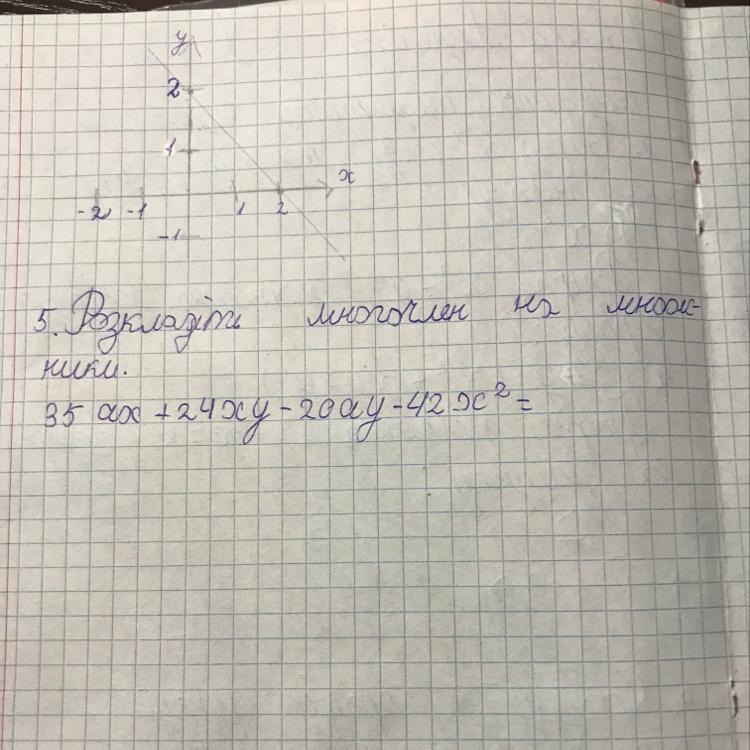 y
2
1
x
-2 -1 1 2
-1
5. Розкладіть многочлен на множ-
ники.
35ax + 24xy - 20ay - 42x² =